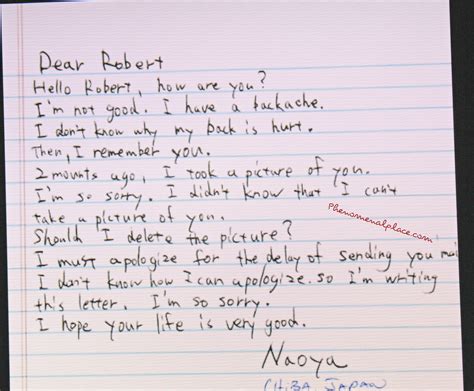 Dear Robert
Hello Robert, how are you?
I'm not good. I have a backache.
I don't know why my back is hurt.
Then, I remember you.
2 mounts ago, I took a picture of you.
I'm so sorry. I didn't know that I can't
take a picture of you.
Phenomenalplace.com
Should I delete the picture?
I must apologize for the delay of sending you mail
I don't know how I can apologize. so I'm writing
this letter. I'm so sorry.
I hope your life is very good.
Naoya
CHIBA, JAPAN